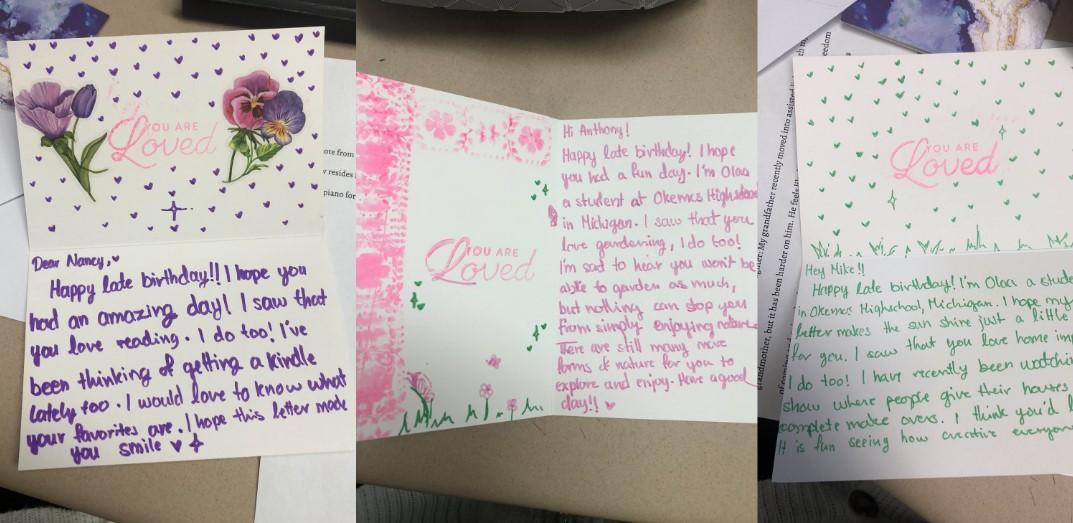 YOU ARE
Loved
Dear Nancy,
Happy late birthday!! I hope you
had an amazing day! I saw that
you love reading. I do too! I've
been thinking of getting a kindle
lately too. I would love to know what
your favorites are. I hope this letter made
you smile
ote from
v resides i
piano for
YOU ARE
Loved
Hi Anthony!
Happy late birthday! I hope
you had a fun day. I'm Olaa
a student at Okemos Highschool
in Michigan. I saw that you
love gardening, I do too!
I'm sad to hear you won't be
able to garden as much,
but nothing can stop you
from simply enjoying nature.
There are still many more
forms of nature for you to
explore and enjoy. Have a good
day!!
grandmother, but it has been harder on him. He feels
My grandfather recently moved into assisted
eedom
YOU ARE
Loved
Hey Mike!!
Happy late birthday! I'm Olaa a stude
in Okemos Highschool, Michigan. I hope my
letter makes the sun shine just a little
for you. I saw that you love home imp
I do too! I have recently been watchin
show where people give their houses
complete make overs. I think you'd l
It is fun seeing how creative everyon